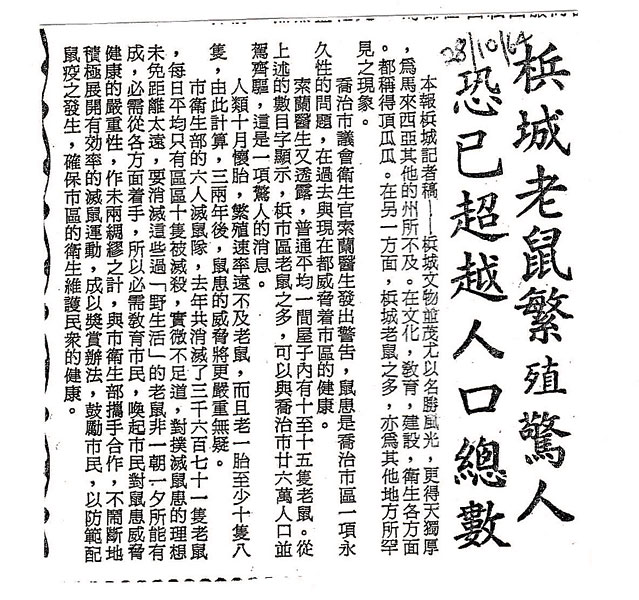 28/10/64
梹城老鼠繁殖驚人
恐已超越人口總數
本報梹城記者稿——梹城文物並茂尤以名勝風光，更得天獨厚
，為馬來西亞其他的州所不及。在文化，敎育，建設，衛生各方面
都稱得頂瓜瓜。在另一方面，梹城老鼠之多，亦為其他地方所罕
見之現象。
喬治市議會衛生官索蘭醫生發出警告，鼠患是喬治市區一項永
久性的問題，在過去與現在都威脅着市區的健康。
索蘭醫生又透露，普通平均一間屋子內有十至十五隻老鼠。從
上述的數目字顯示，梹市區老鼠之多，可以與喬治市廿六萬人口並
駕齊驅，這是一項驚人的消息。
人類十月懷胎，繁殖速率遠不及老鼠，而且老一胎至少十隻八
隻，由此計算，三兩年後，鼠患的威脅將更嚴重無疑。
市衛生部的六人滅鼠隊，去年共消滅了三千六百七十一隻老鼠
，每日平均只有區區十隻被滅殺，實微不足道，對撲滅鼠患的理想
未免距離太遠，要消滅這些過「野生活」的老鼠非一朝一夕所能有
成，必需從各方面着手，所以必需敎育市民，喚起市民對鼠患威脅
健康的嚴重性，作未兩綢繆之計，與市衛生部攜手合作，不鬧斷地
積極展開有効率的滅鼠運動，成以奬賞辦法，鼓勵市民，以防範配
鼠疫之發生，確保市區的衛生維護民衆的健康。